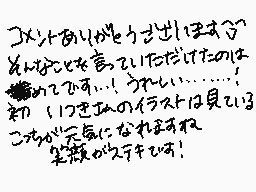 コメントありがとうございます^^
そんなことを言っていただけたのは
初めてです…!うれしい……!
いつきさんのイラストは見ている
こっちが元気になれますね
笑顔がステキです!